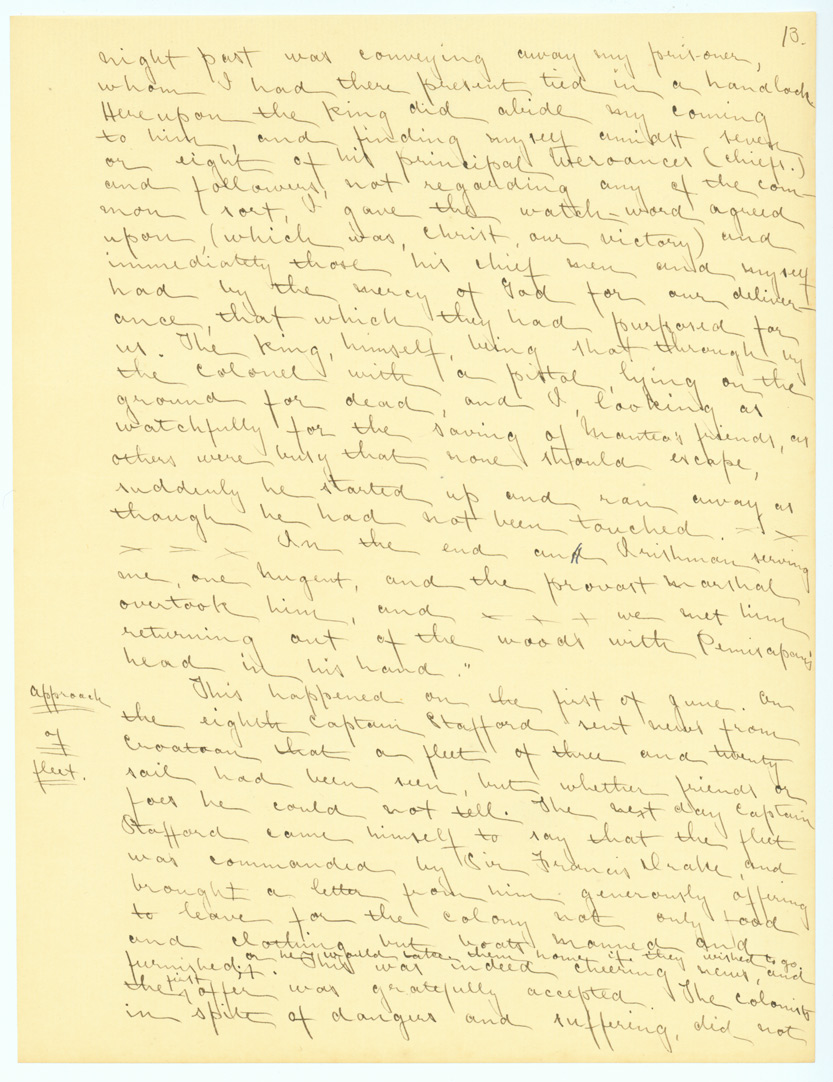 13.
night past was conveying away my prisoner,
whom I had there present tied in a handlock
Hereupon the king did abide my coming
to him, and finding myself amidst seven
or eight of his principal Weroances (chiefs.)
and followers, not regarding any of the com-
mon sort, I gave the watch-word agreed
upon, (which was, Christ, our victory) and
immediately those his chief men and myself
had by the mercy of God for our deliver-
ance, that which they had purposed for
us. The king, himself, being shot through by
the colonel with a pistol, lying on the
ground for dead, and I, looking as
watchfully for the saving of Manteo's friends, as
others were busy that none should escape,
suddenly he started up and ran away as
though he had not been touched. x x
x x x In the end an Irishman serving
me, one Nugent, and the provost marshal
overtook him, and x x x we met him
returning out of the woods with Pemisapan's
head in his hand."
Approach
of
fleet.
This happened on the first of June. On
the eighth Captain Stafford sent news from
Croatoan that a fleet of three and twenty
sail had been seen, but whether friends or
foes he could not tell. The next day Captain
Stafford came himself to say that the fleet
was commanded by Sir Francis Drake, and
brought a letter from him generously offering
to leave for the colony not only food
and clothing but boats manned and
or he would take them home if they wished to go.
furnished; This was indeed cheering news, and
the first offer was gratefully accepted. The colonists
in spite of dangers and suffering, did not